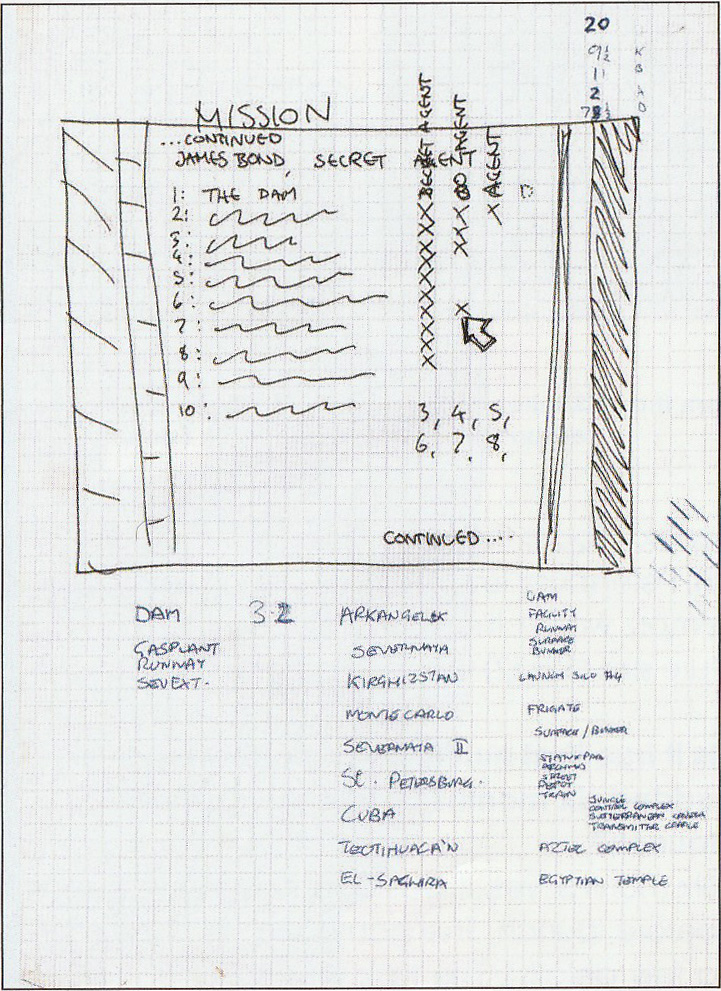 20
9½ K
11 B
2
7½ D
MISSION
...CONTINUED
JAMES BOND, SECRET AGENT
SECRET AGENT
00 AGENT
AGENT
1: THE DAM
2:
3:
4:
5:
6:
7:
8:
9:
10:
3, 4, 5,
6, 7, 8,
CONTINUED ....
DAM 3.2
GASPLANT
RUNWAY
SEVEXT.
ARKANGELSK
SEVERNAYA
KIRGHIZSTAN
MONTE CARLO
SEVERNAYA II
St. PETERSBURG.
CUBA
TEOTIHUACA'N
EL-SAGHIRA
DAM
FACILITY
RUNWAY
SURFACE
BUNKER
LAUNCH SILO #4
FRIGATE
SURFACE/BUNKER
STATUE PARK
ARCHIVES
STREET
DEPOT
TRAIN
JUNGLE
CONTROL COMPLEX
SUBTERRANEAN CAVERN
TRANSMITTER CRADLE
AZTEC COMPLEX
EGYPTIAN TEMPLE